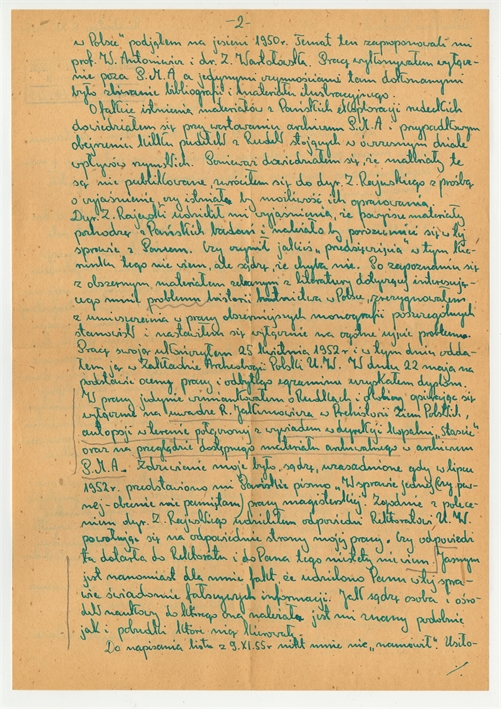 -2-
w Polsce" podjąłem na jesieni 1950 r. Temat ten zaproponowali mi
prof. W. Antoniewicz i dr. Z. Wartołowska. Pracę wykonywałem wyłącz-
nie poza P.M.A a jedynymi czynnościami tam dokonanymi
było zbieranie bibliografii i materiału ilustracyjnego.
O fakcie istnienia materiałów z Pańskich eksploracji rudeckich
dowiedziałem się przy wertowaniu archiwum P.M.A i przypadkowym
obejrzeniu kilku pudełek z Rudek stojących w ówczesnym dziale
wpływów rzymskich. Ponieważ dowiedziałem się, że materiały te
są nie publikowane zwróciłem się do dyr. Z. Rajewskiego z prośbą
o wyjaśnienie, czy istniała by możliwość ich opracowania.
Dyr. Z. Rajewski udzielił mi wyjaśnienia, że powyższe materiały
pochodzą z Pańskich badań i należało by porozumieć się w tej
sprawie z Panem. Czy czynił jakieś „przedsięwzięcia" w tym kie-
runku tego nie wiem, ale sądzę, że chyba nie. Po zapoznaniu się
z obszernym materiałem zebranym z literatury dotyczącej interesują-
cego mnie problemu historii hutnictwa w Polsce, zrezygnowałem
z umieszczenia w pracy obszerniejszych monografii poszczególnych
stanowisk i nastawiłem się wyłącznie na ogólne ujęcie problemu.
Pracę swoją ukończyłem 25 kwietnia 1952 r i w tym dniu odda-
łem ją w Zakładzie Archeologii Polski U.W. W dniu 22 maja na
podstawie oceny pracy i odbytego egzaminu uzyskałem dyplom.
W pracy jedynie wzmiankowałem o Rudkach i okolicy opierając się
wyłącznie na uwadze R. Jakimowicza w Prehistorii Ziem Polskich,
autopsji w terenie połączonej z wywiadem w dyrekcji kopalni „Staszic"
oraz na przeglądzie dostępnego materiału archiwalnego w archiwum
P.M.A. Zdziwienie moje było, sądzę, uzasadnione gdy w lipcu
1952 r. przedstawiono mi Pańskie pismo „W sprawie jednej (czy pew-
nej - obecnie nie pamiętam) pracy magisterskiej". Zgodnie z polece-
niem dyr. Z. Rajewskiego udzieliłem odpowiedzi Rektoratowi U.W.
powołując się na odpowiednie strony mojej pracy. Czy odpowiedź
ta dotarła do Rektoratu i do Pana tego niestety nie wiem. Jasnym
jest natomiast dla mnie fakt, że udzielono Panu w tej spra-
wie świadomie fałszywych informacji. Jak sądzę osoba i ośro-
dek naukowy do którego ona należała jest mi znany podobnie
jak i pobudki które nią kierowały.
Do napisania listu z 9.XI.55 r nikt mnie nie „namówił". Usiło-